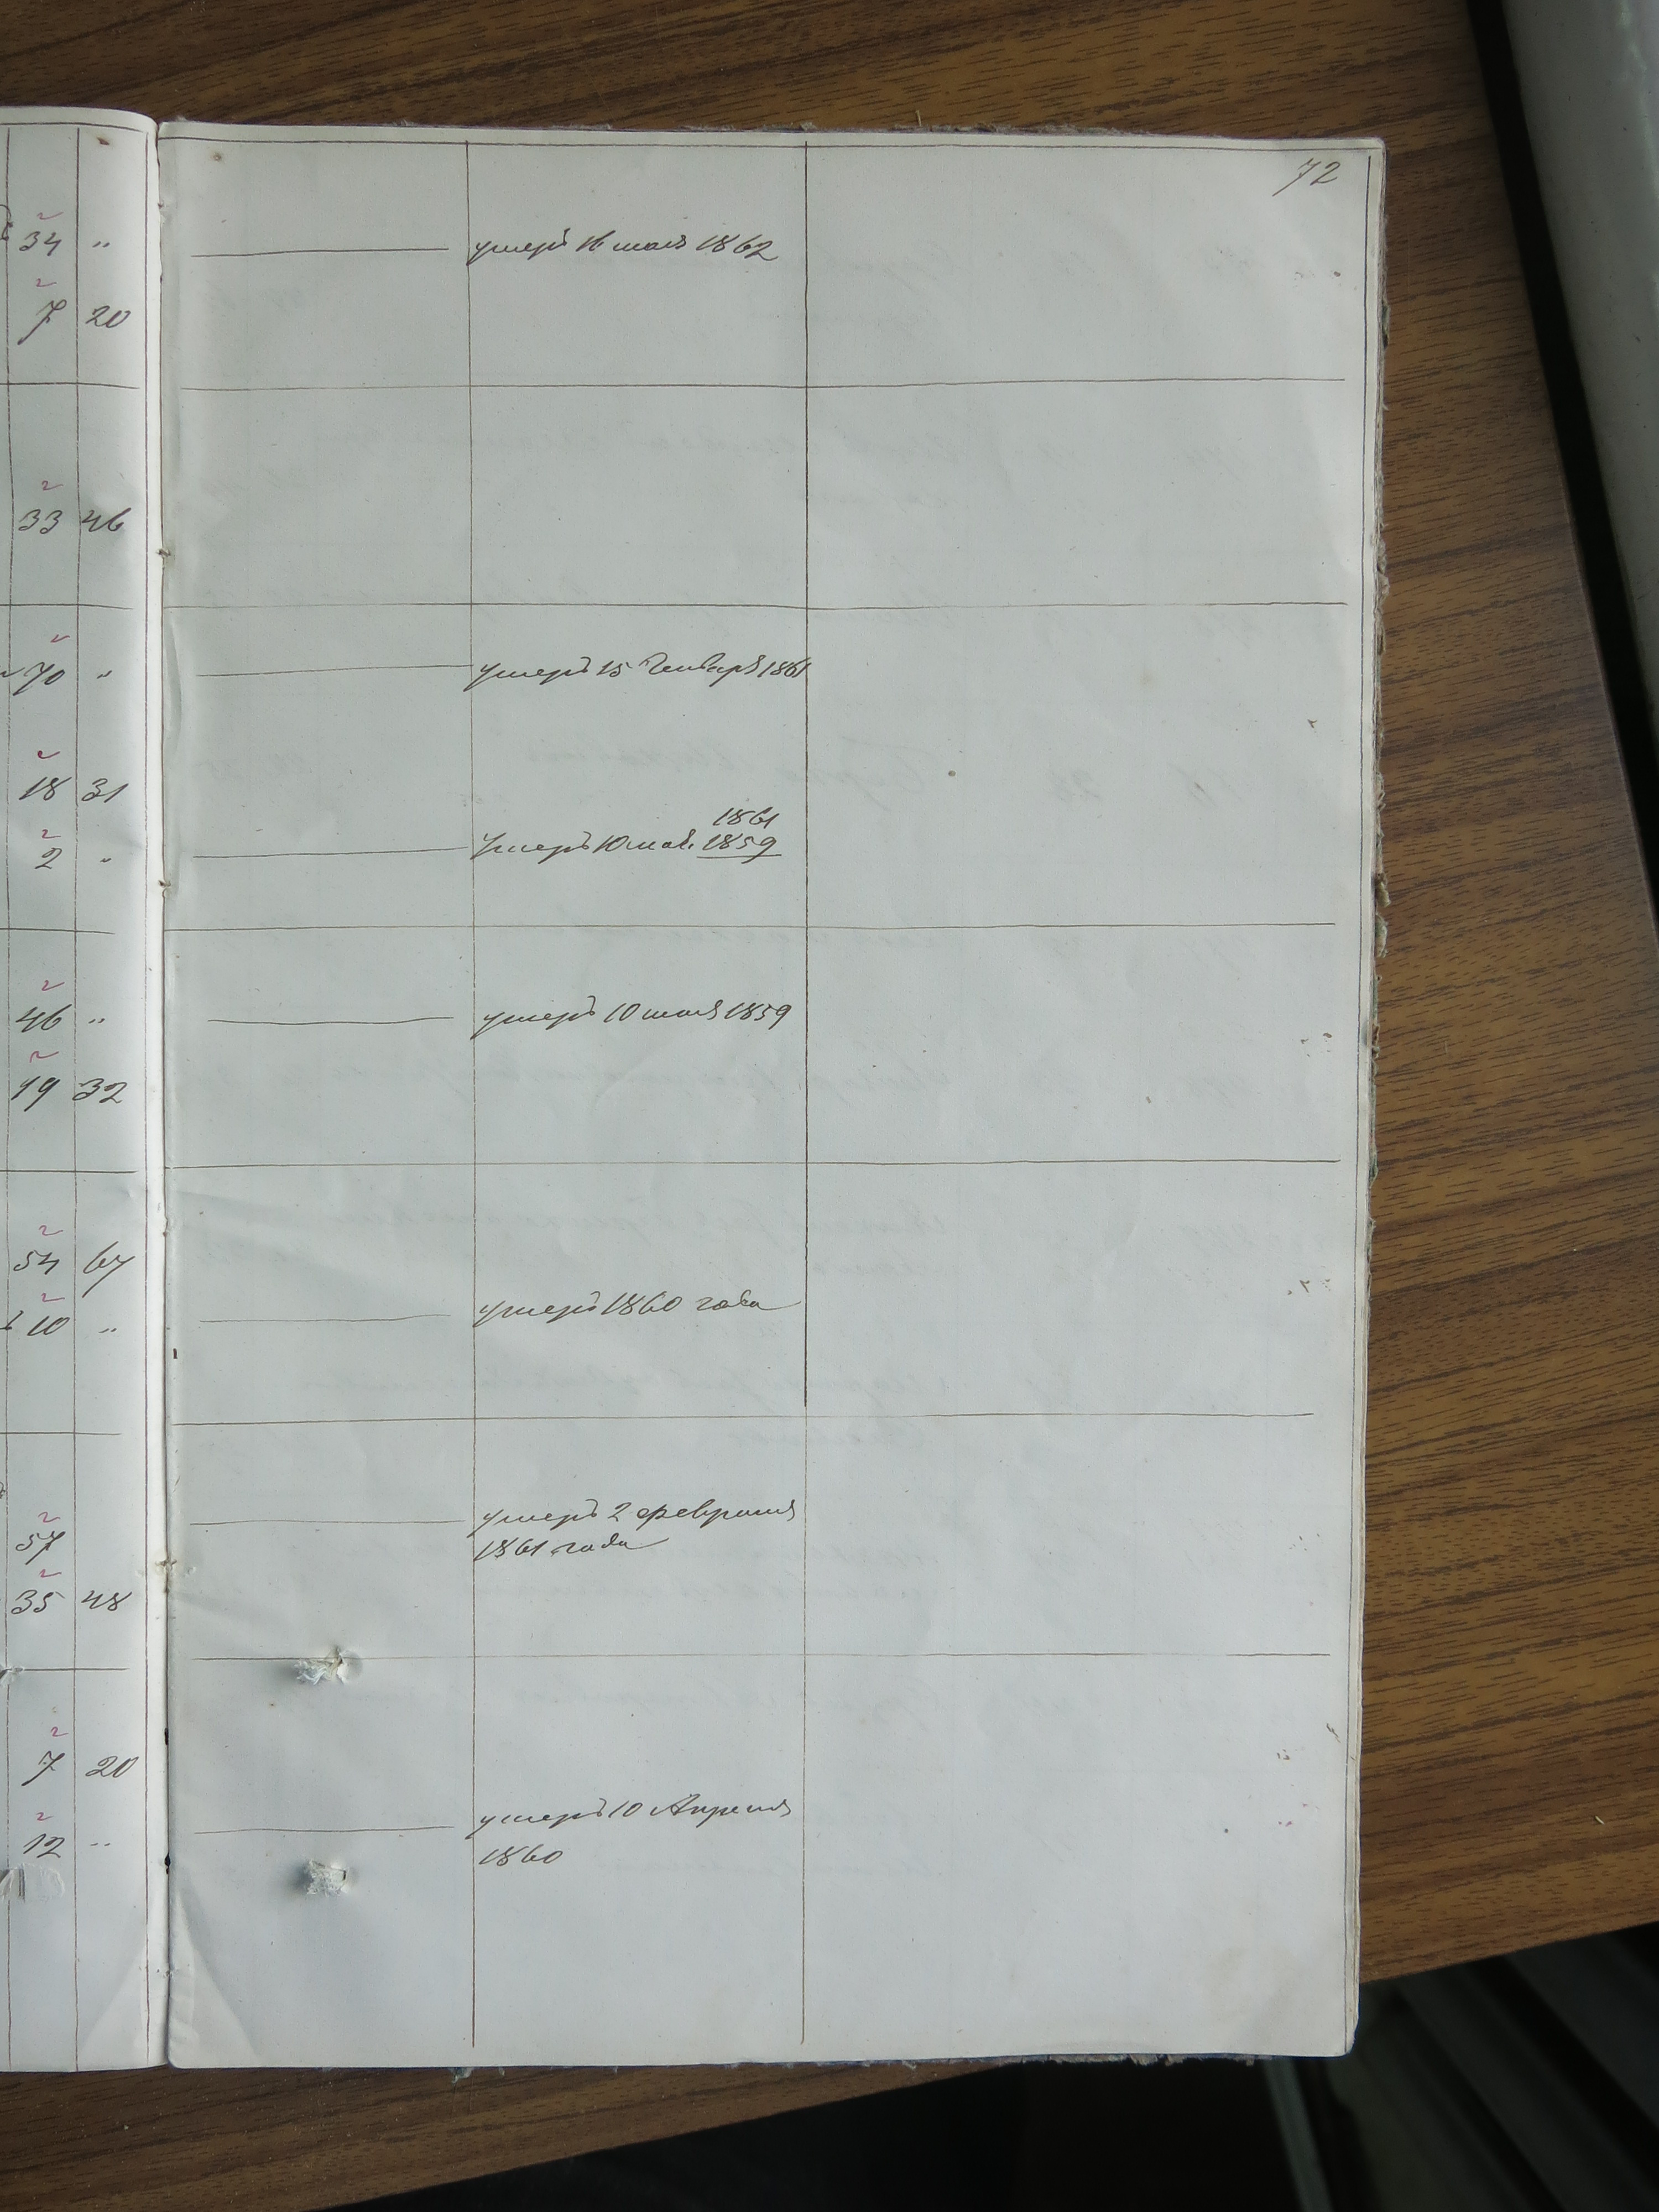 72
34 " умеръ 16 мая 1862
7 20
33 46
70 " умеръ 15 Генваря 1861
18 31
1861
2 " Умеръ 10 1859
46 " умеръ 10 мая 1859
19 32
54 67
10 " умеръ 1860 года
57 умеръ 2 февраля
1861 года
35 48
7 20
12 " умеръ 10 Апреля
1860